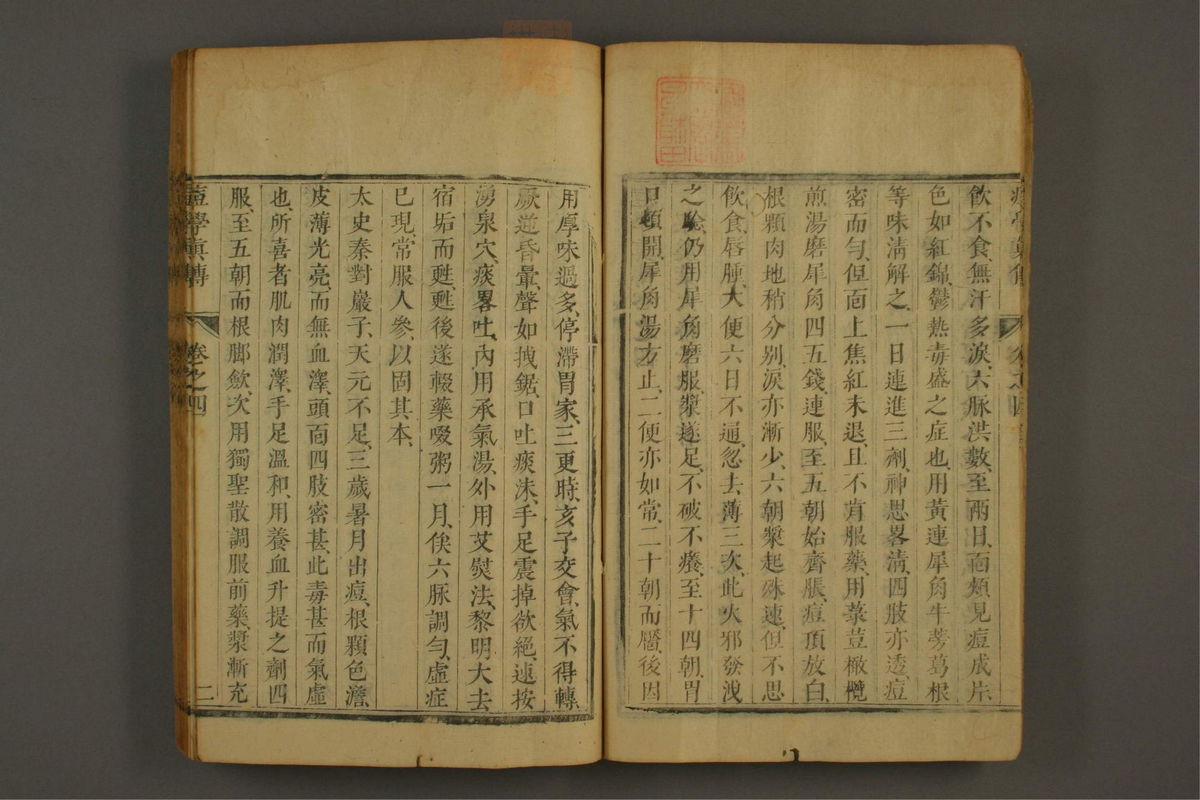 飲不食、無汗多淚、六脉洪數、至兩日、面頰見痘成片
色如紅錦、鬱熱毒盛之症也、用黃連犀角牛蒡葛根
等味淸解之、一日連進三劑、神思畧淸、四肢亦透、痘
密而勻、但面上焦紅未退、且不肯服藥、用菉荳橄欖
煎湯磨犀角四五錢、連服、至五朝始齊脹、痘頂放白、
根顆肉地稍分別、淚亦漸少、六朝漿起殊速、但不思
飲食、唇腫、大便六日不通、忽去薄三次、此火邪發洩
之騐、仍用犀角磨服、漿遂足、不破不癢、至十四朝、胃
口頓開、犀角湯方止、二便亦如常、二十朝而靨、後因
用厚味過多、停滯胃家、三更時、亥子交會、氣不得轉、
厥逆昏暈、聲如拽鋸、口吐痰沫、手足震掉欲絕、速按
湧泉穴、痰畧吐、內用承氣湯、外用艾熨法、黎明大去
宿垢而甦、甦後遂輟藥啜粥一月、俟六脉調勻、虛症
已現、常服人參、以固其本、
太史秦對巖子、天元不足、三歲暑月出痘、根顆色澹、
皮薄光亮、而無血澤、頭面四肢密甚、此毒甚而氣虛
也、所喜者肌肉潤澤、手足溫和、用養血升提之劑、四
服、至五朝而根脚斂、次用獨聖散調服前藥、漿漸充
痘學眞傳 卷之四 二